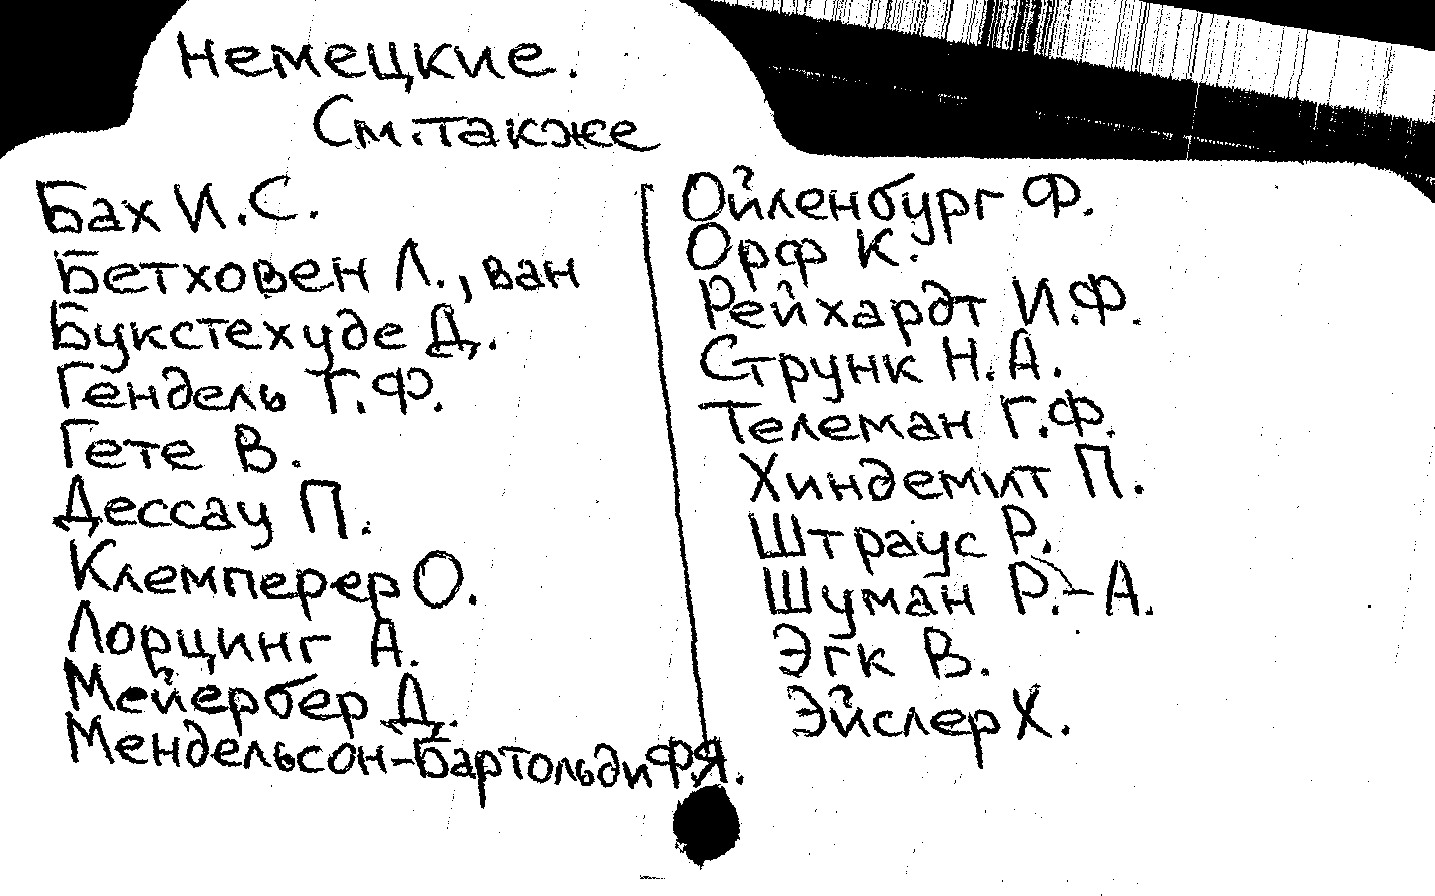 Немецкие.
См. также
Бах И.С.
Бетховен Л., ван
Букстехуде Д.
Гендель Г.Ф.
Гете В.
Дессау П.
Клемперер О.
Лорцинг А.
Мейербер Д.
Мендельсон-Бартольди Ф.Я.
Ойленбург Ф.
Орф К.
Рейхардт И.Ф.
Струнк Н.А.
Телеман Г.Ф.
Хиндемит П.
Штраус Р.
Шуман Р.-А.
Эгк В.
Эйслер Х.